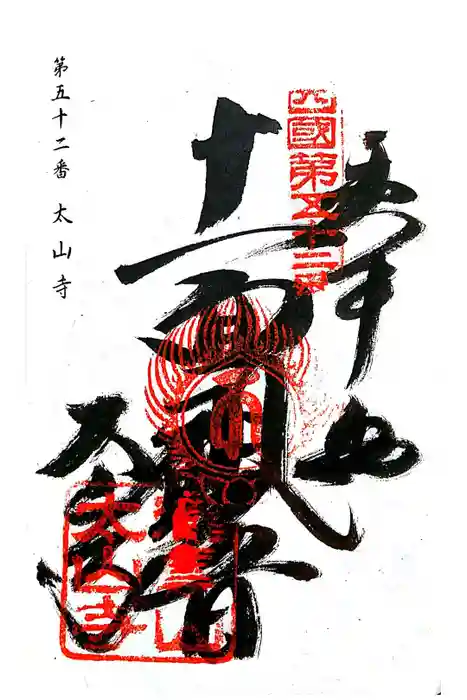 四國第五十二番
奉拝
十一面観音
太山寺
瀧雲山
太山寺
第五十二番 太山寺